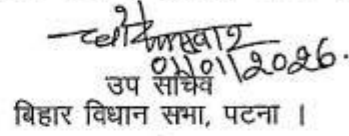 01/01/2026.
उप सचिव
बिहार विधान सभा, पटना ।